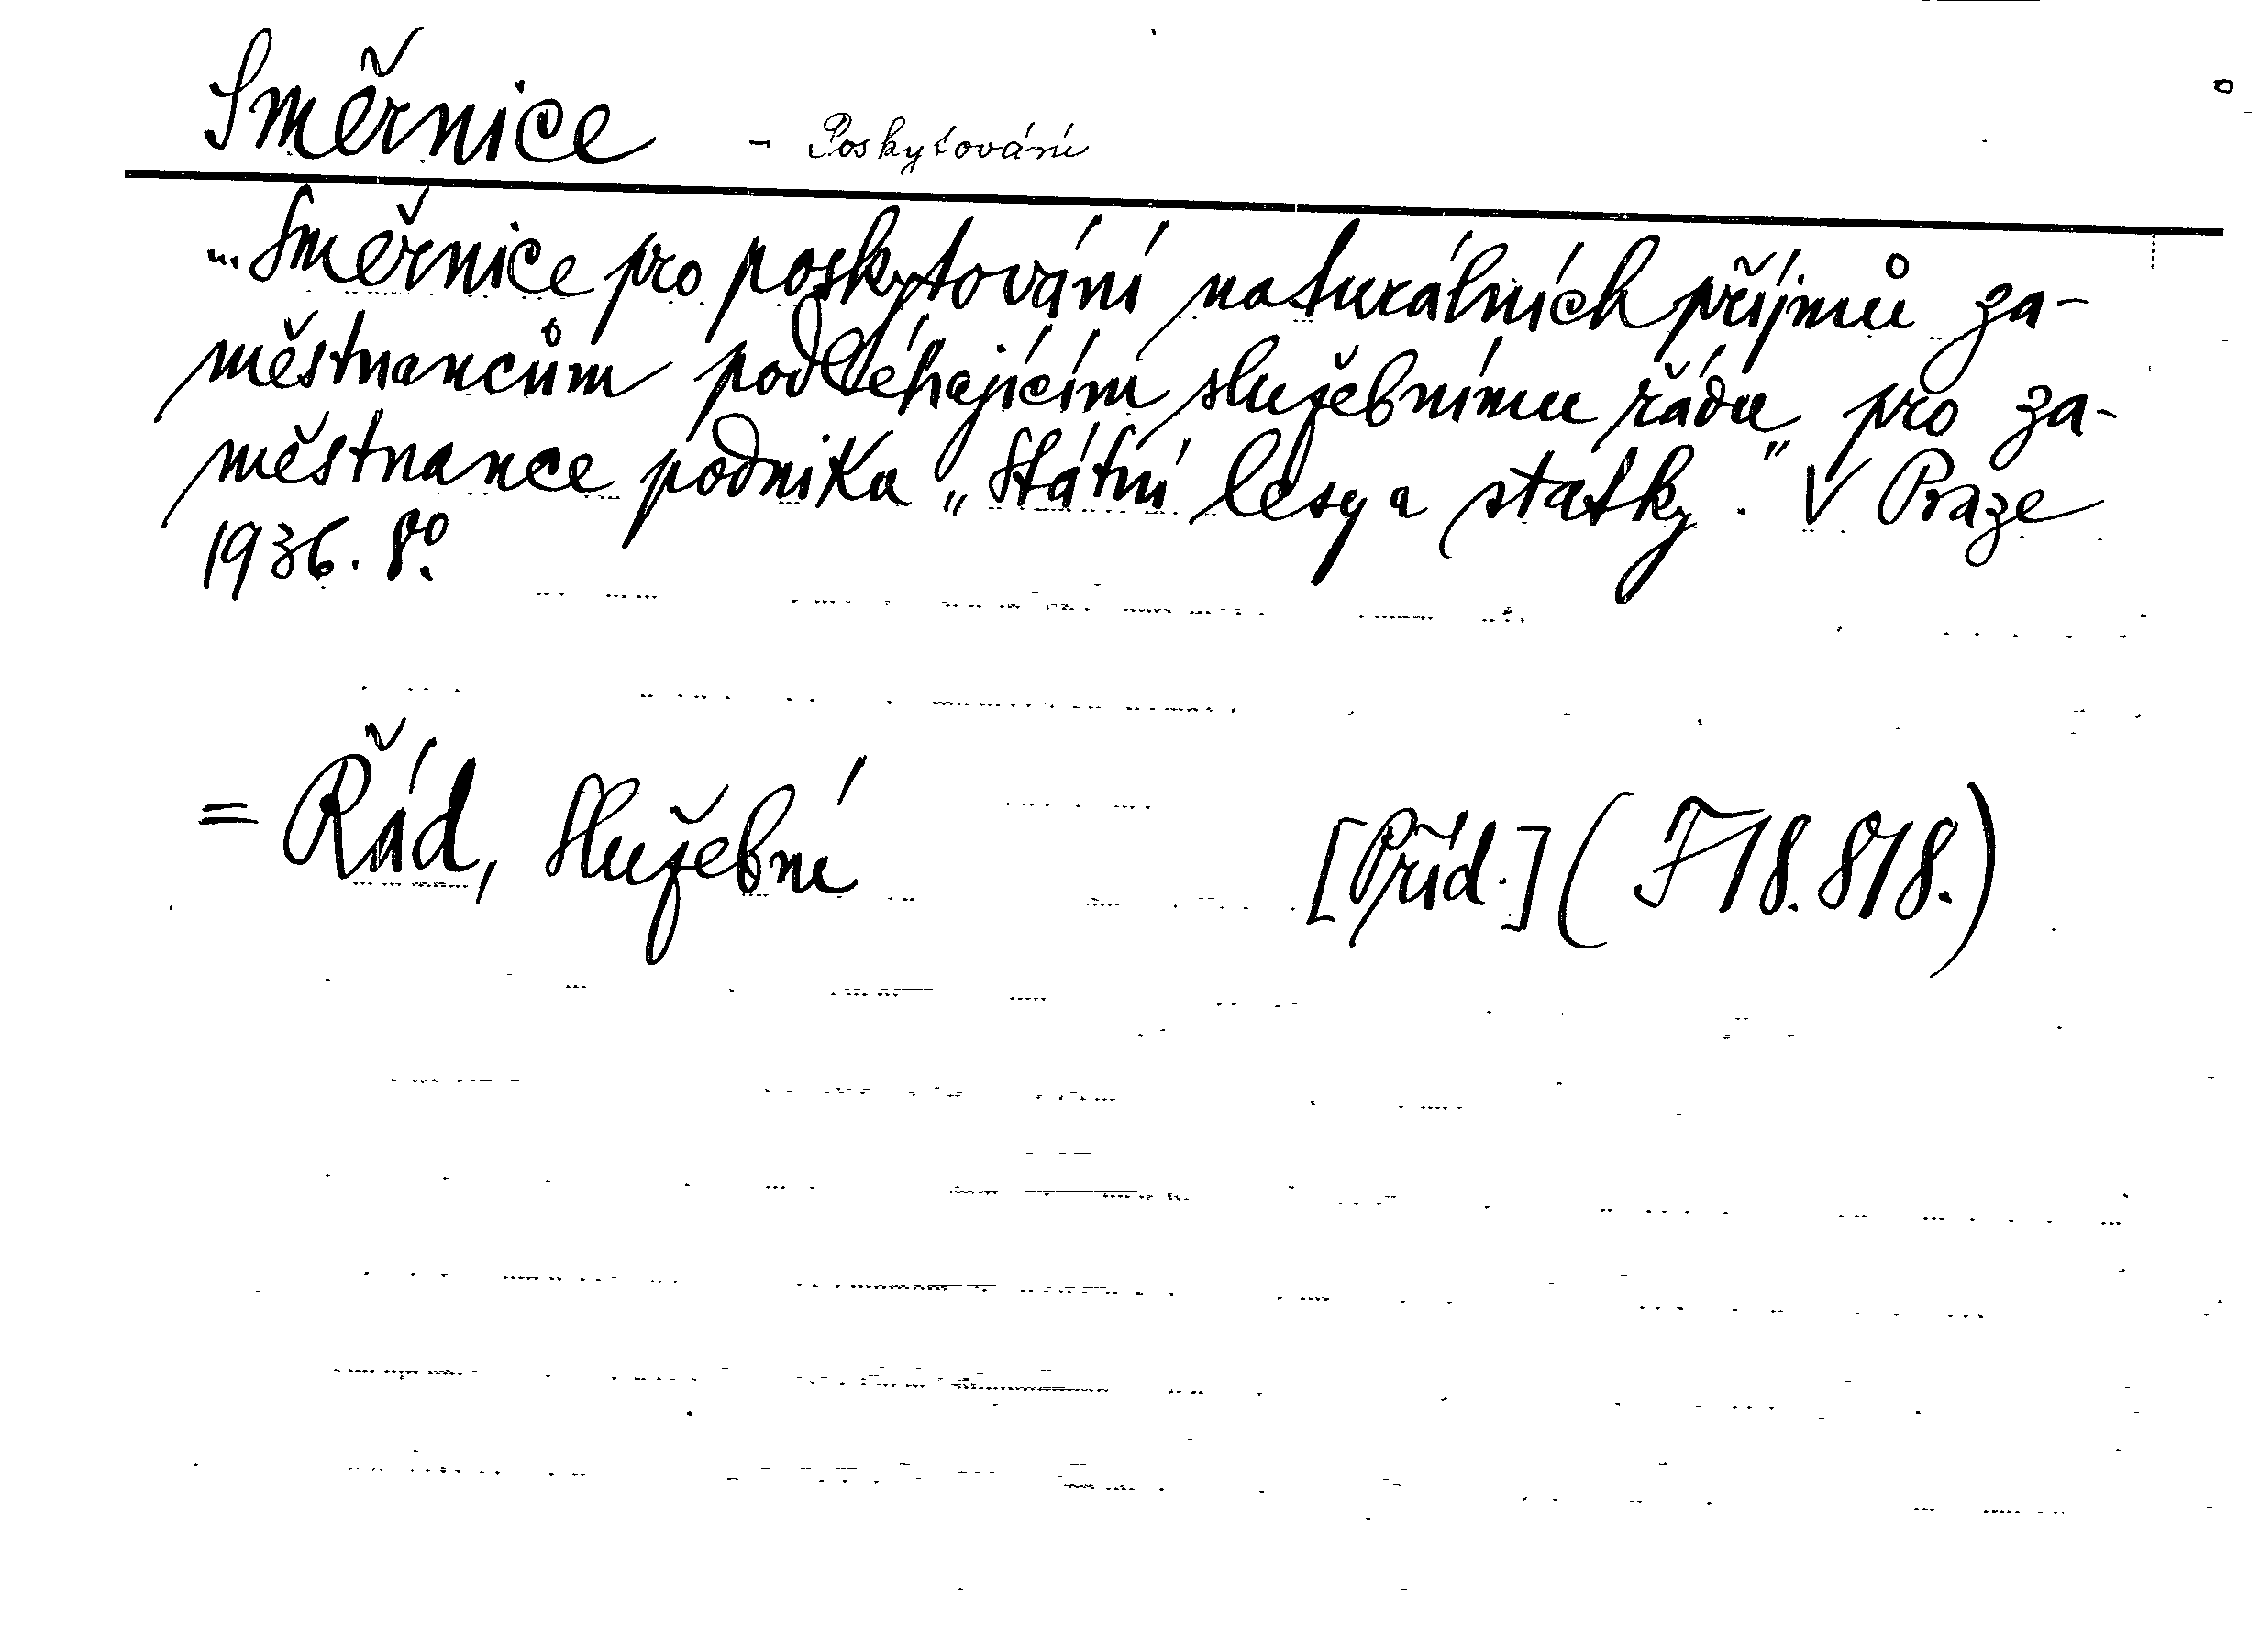 Směrnice - Poskytování
„...Směrnice pro poskytování naturálních příjmů za-
městnancům podléhajícím služebnímu řádu pro za-
městnance podniku „Státní lesy a statky." V Praze
1936. 8°.
= Řád, služební [Příd.] (F 18.818.)